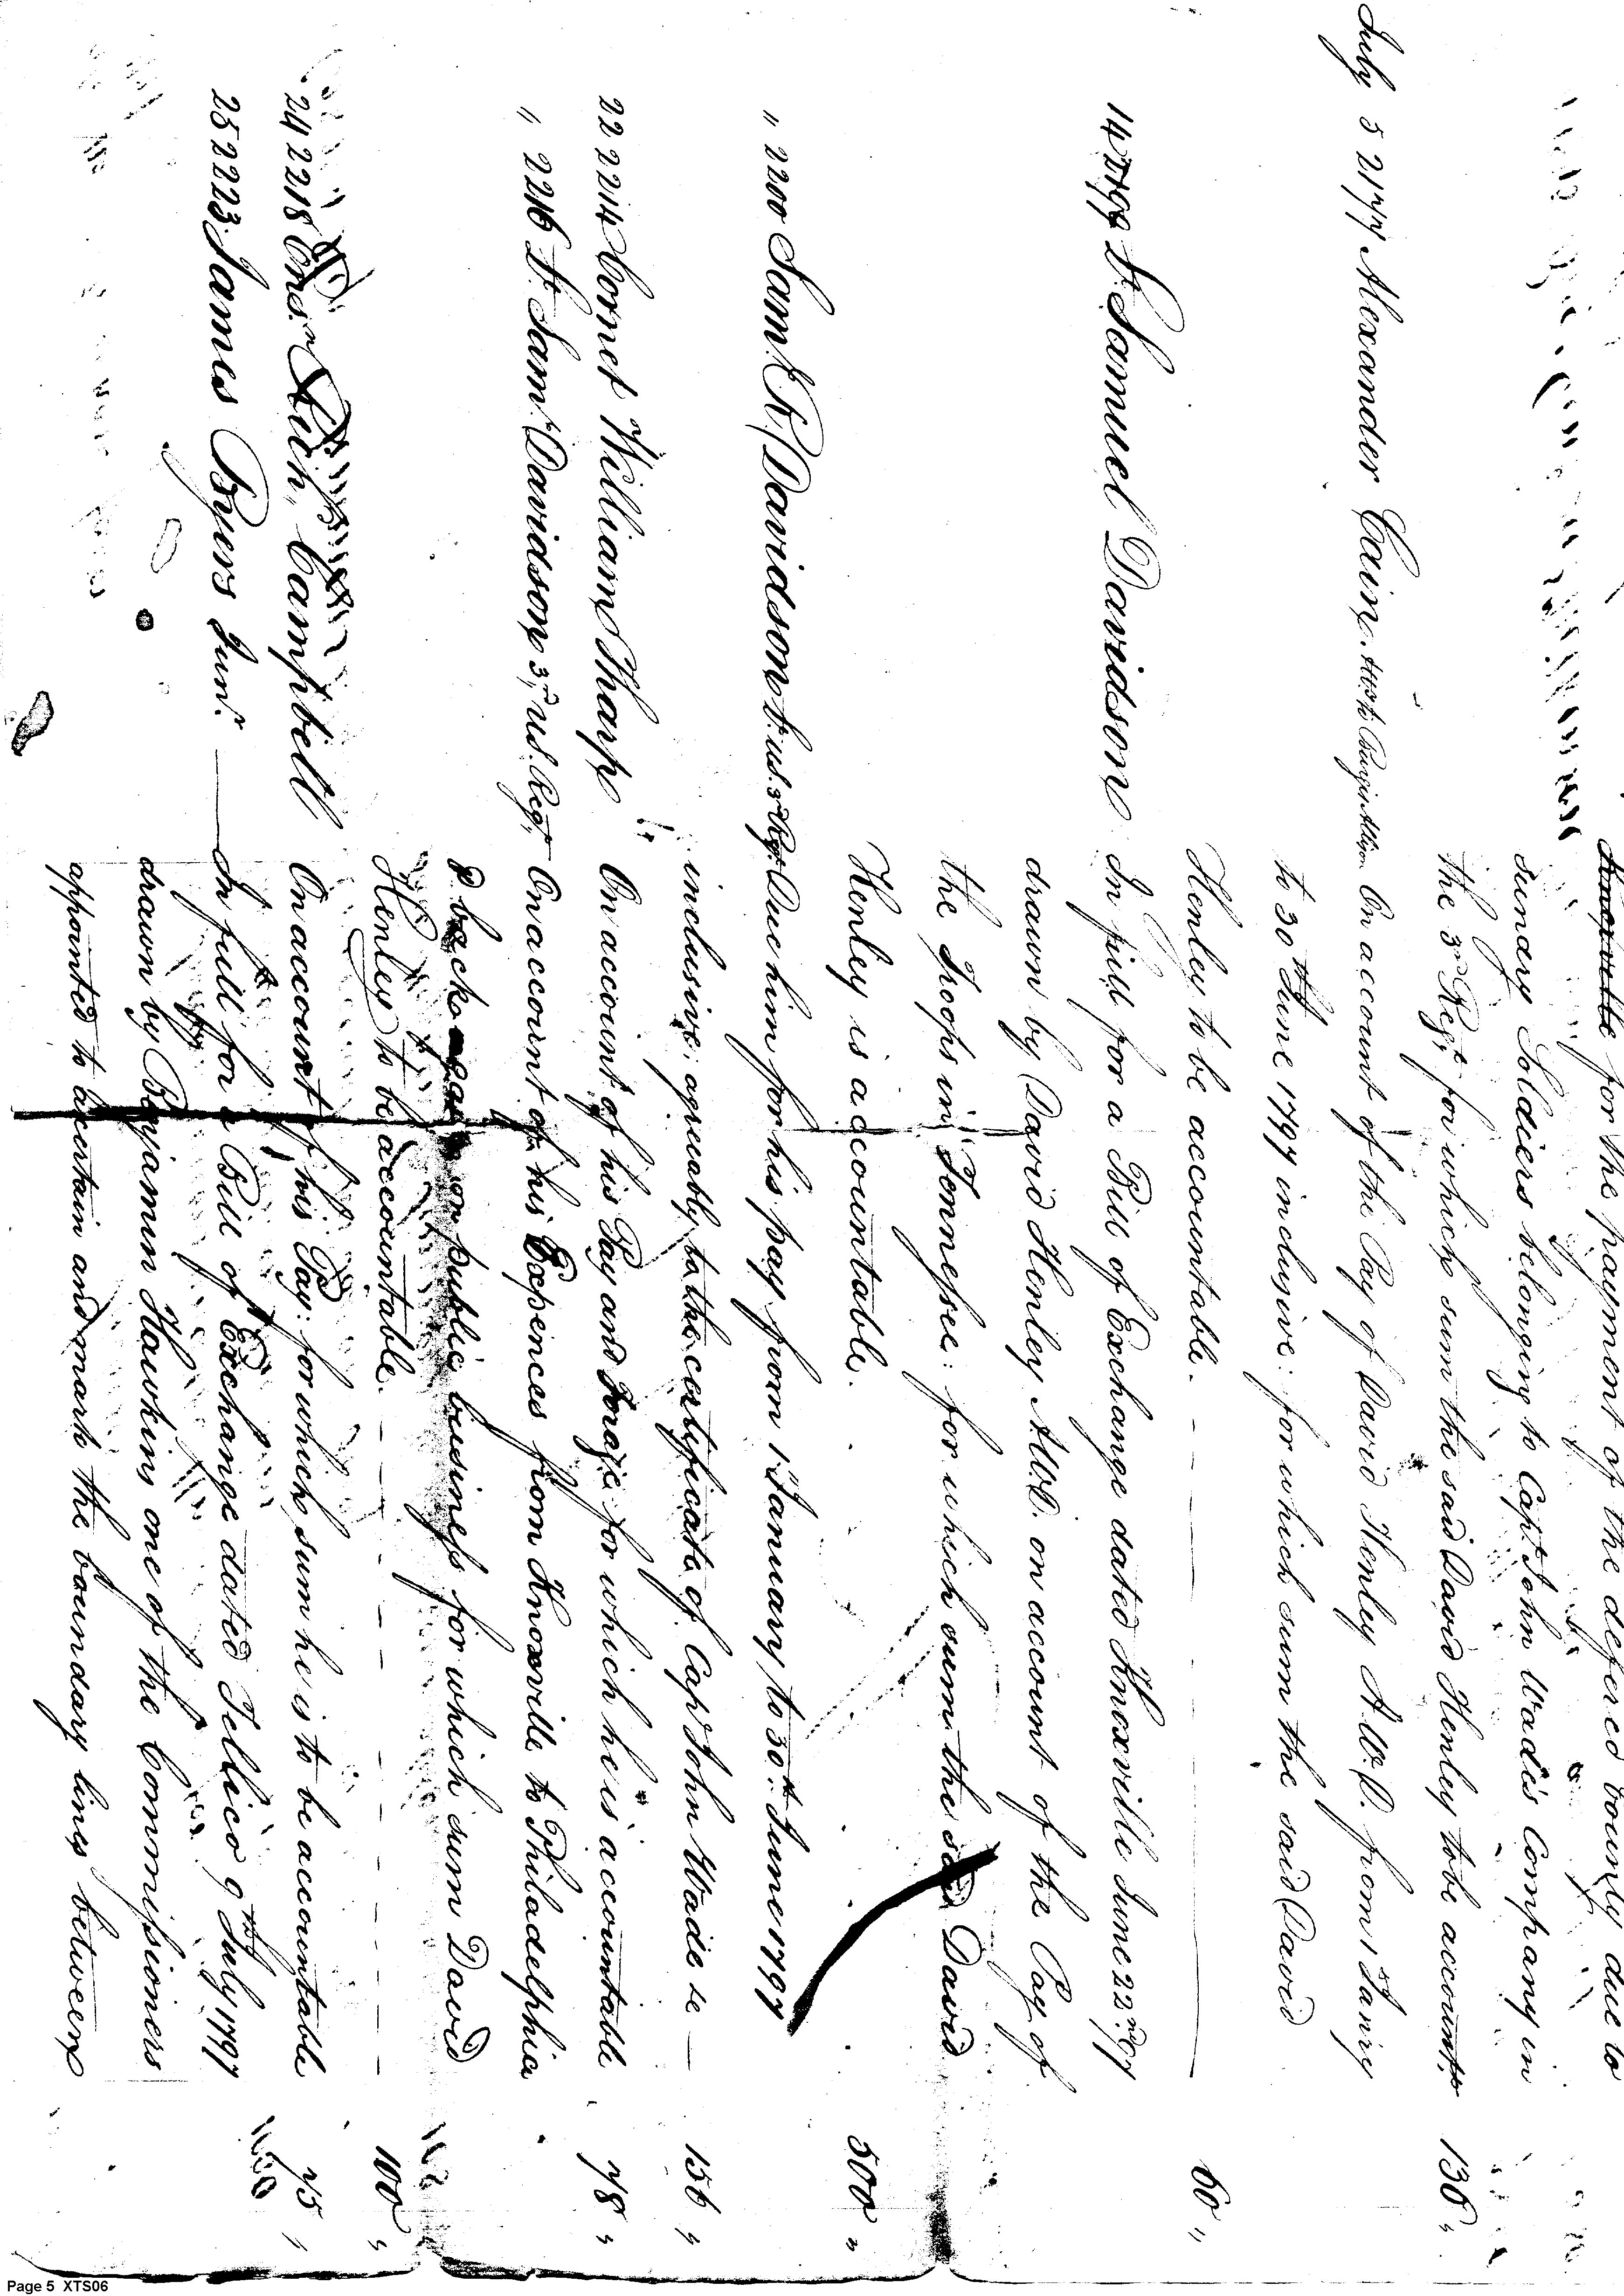 Knoxville for the payment of the defered bounty due to
sundry Soldiers belonging to Capt John Wade's Company in
the 3rd Regt for which sum the said David Henley to be accountt 136 "
July 5 2177 Alexander Cain On account of the Pay of David Henley A.W.D. from 1st Janry
to 30th June 1797 inclusive: for which sum the said David
Henley to be accountable. 60 "
14 Lt Samuel Davidson In full for a Bill of Exchange dated Knoxville June 22nd 97
drawn by David Henley A.W.D. on account of the Pay of
the Troops in Tennessee: for which sum the said David
Henley is accountable. 500 "
" 2200 Saml R. Davidson Lt US. 3rd Regt Due him for his pay from 1st January to 30th June 1797
inclusive, agreeably to the certificate of Capt John Wade se — 156 "
22 2214 Cornet William Tharp On account of his Pay and Forage for which he is accountable 78 "
" 2216 Lt Saml Davidson 3rd US. Regt On account of his Expences from Knoxville to Philadelphia
& back on public business for which sum David
Henley to be accountable. 100 "
24 2218 Ens.n Campbell On account of his Pay: for which sum he is to be accountable 75 "
25 2223 James Byers Junr. In full for a Bill of Exchange dated Tellico 9th July 1797
drawn by Benjamin Hawkins one of the Commissioners
appointed to ascertain and mark the boundary lines between
Page 5 XTS06